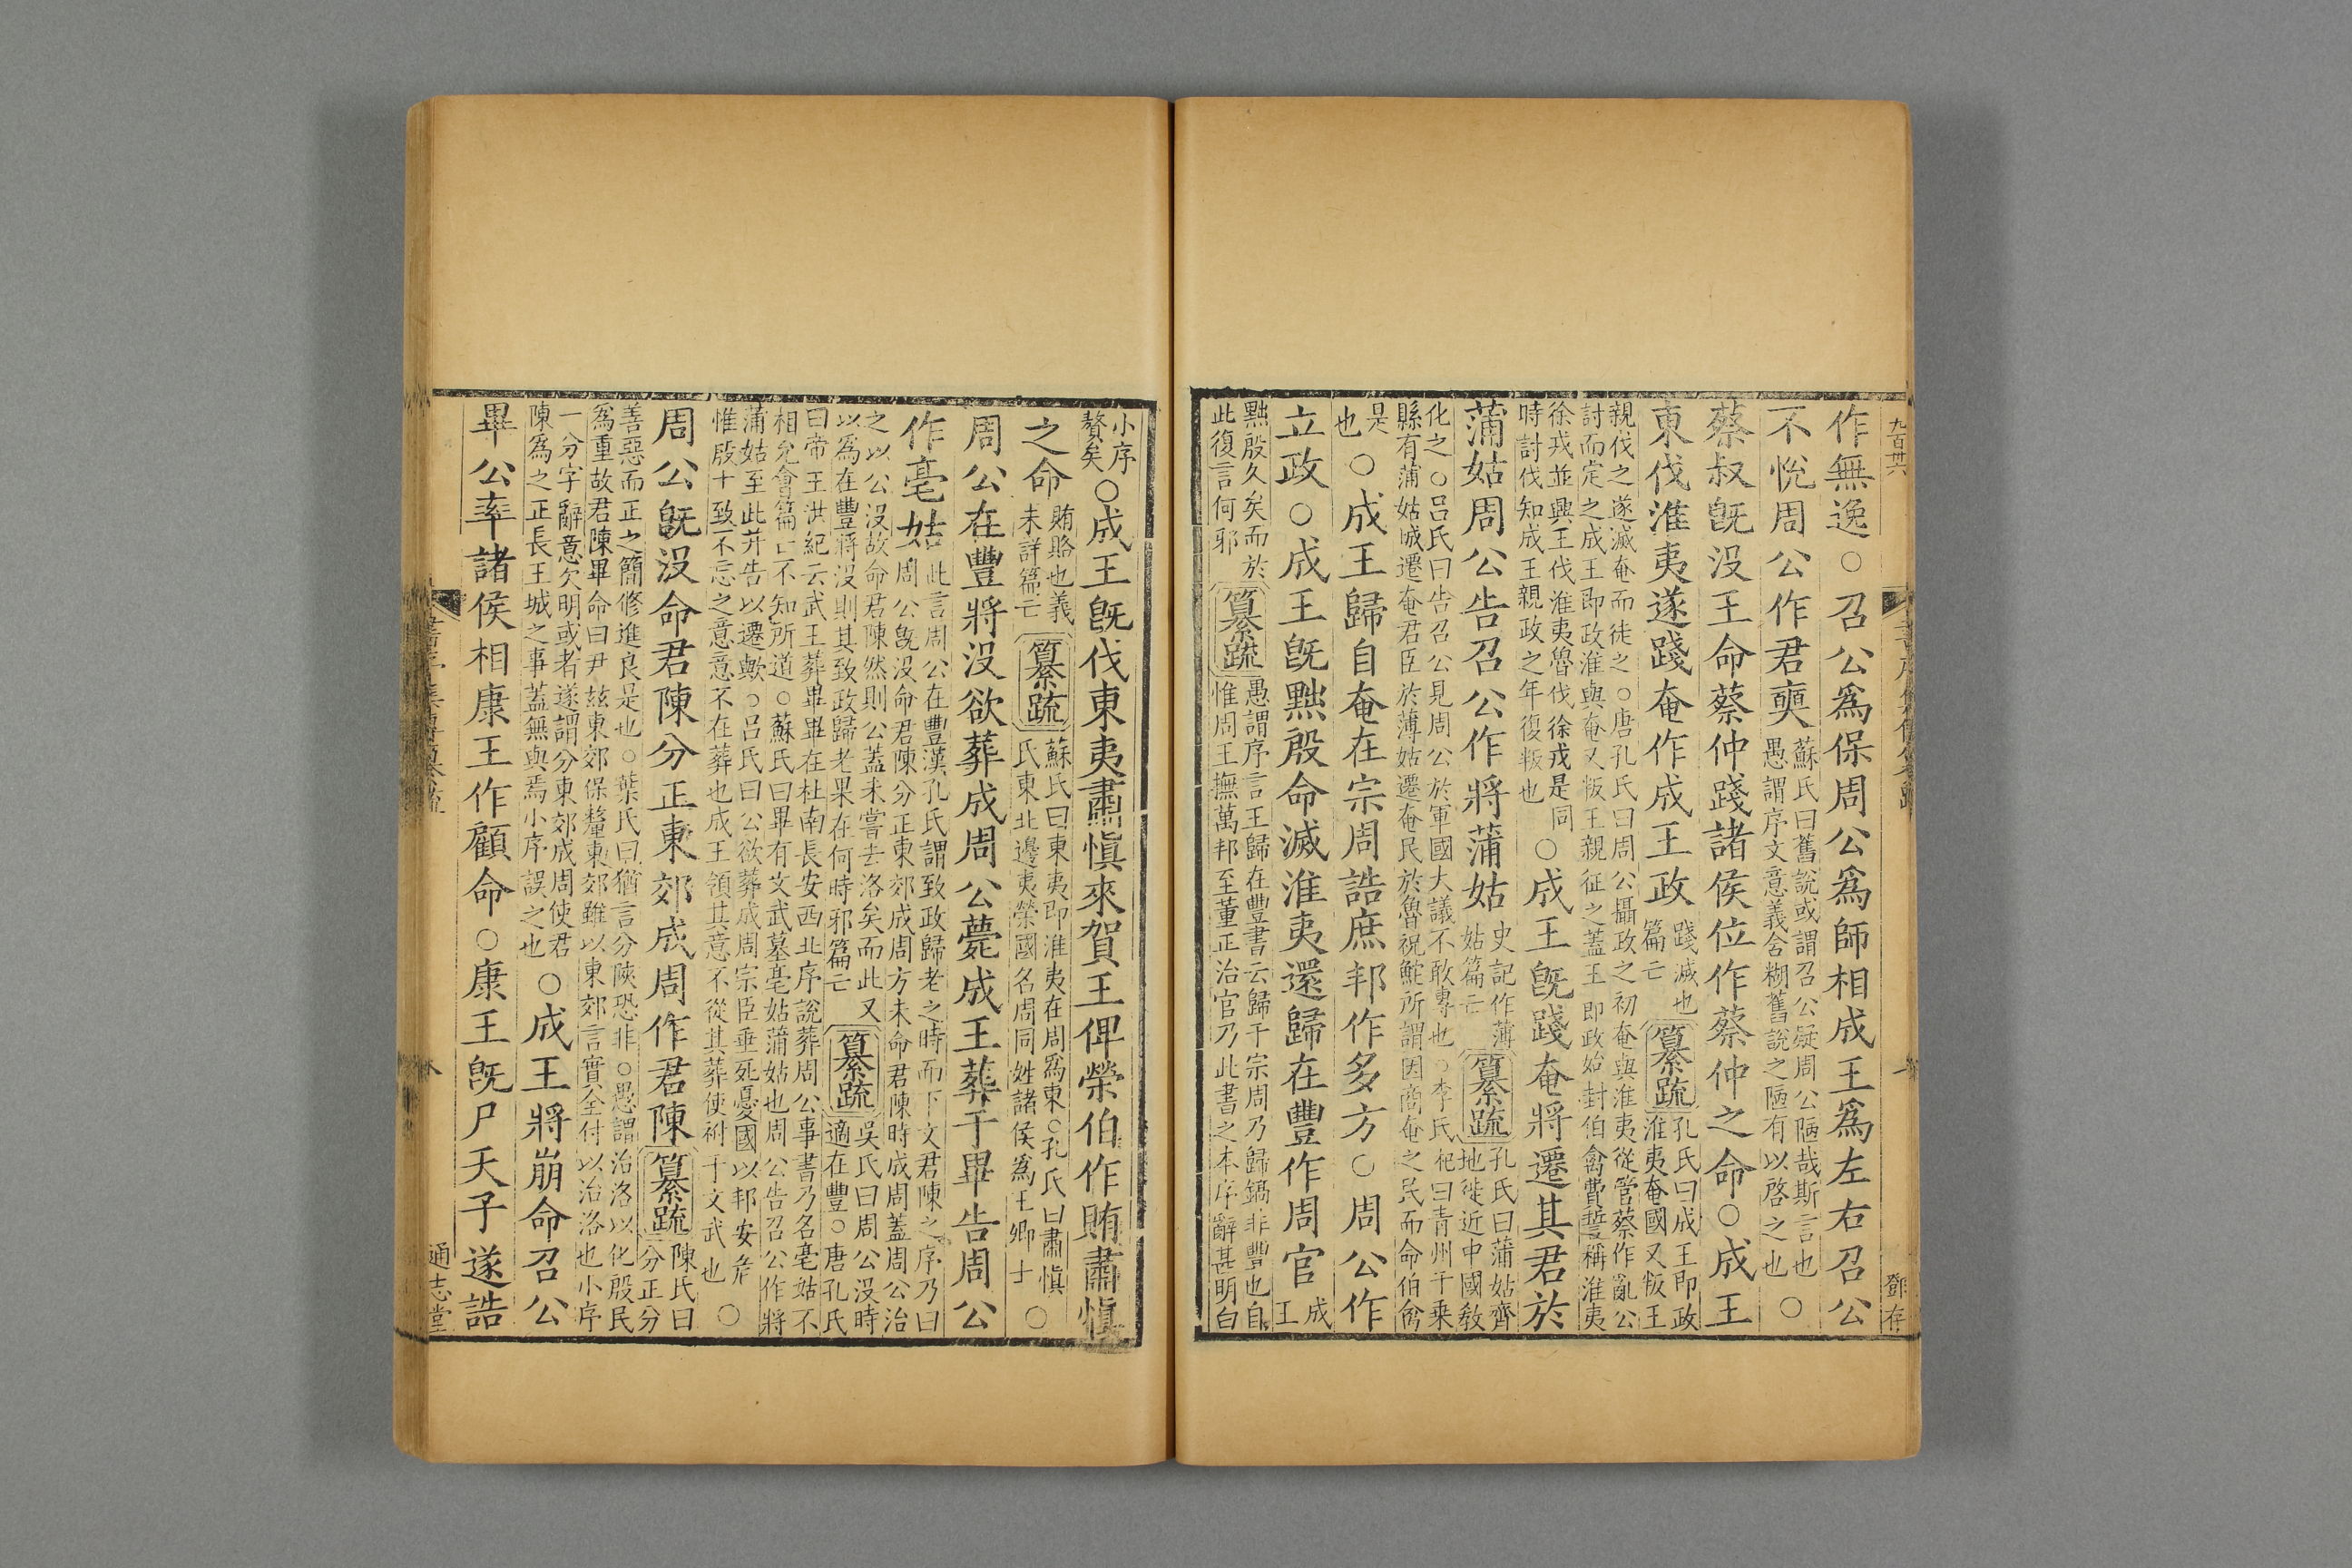 九百卅六
鄧存
作無逸○召公爲保周公爲師相成王爲左右召公
不恱周公作君奭蘇氏曰舊說或謂召公疑周公陋哉斯言也愚謂序文意義含糊舊說之陋有以啓之也○
蔡叔旣沒王命蔡仲踐諸侯位作蔡仲之命○成王
東伐淮夷遂踐奄作成王政踐滅也篇亡纂疏孔氏曰成王即政淮夷奄國又叛王
親伐之遂滅奄而徙之○唐孔氏曰周公攝政之初奄與淮夷從管蔡作亂公
討而定之成王即政淮與奄又叛王親征之蓋王即政始封伯禽費誓稱淮夷
徐戎並興王伐淮夷魯伐徐戎是同時討伐知成王親政之年復叛也○成王旣踐奄將遷其君於
蒲姑周公告召公作將蒲姑史記作薄姑篇亡纂疏孔氏曰蒲姑齊地徙近中國敎
化之○呂氏曰告召公見周公於軍國大議不敢專也○李氏杞曰青州千乗
縣有蒲姑城遷奄君臣於薄姑遷奄民於魯祝鮀所謂因商奄之民而命伯禽
是也○成王歸自奄在宗周誥庶邦作多方○周公作
立政○成王旣黜殷命滅淮夷還歸在豐作周官成王
黜殷久矣而於此復言何邪纂疏愚謂序言王歸在豐書云歸于宗周乃歸鎬非豐也自惟周王撫萬邦至董正治官乃此書之本序辭甚明白
小序贅矣○成王旣伐東夷肅愼來賀王俾榮伯作賄肅愼
之命賄賂也義未詳篇亡纂疏蘇氏曰東夷即淮夷在周爲東○孔氏曰肅愼氏東北邊夷榮國名周同姓諸侯爲王卿士○
周公在豐將沒欲葬成周公薨成王葬于畢告周公
作亳姑此言周公在豐漢孔氏謂致政歸老之時而下文君陳之序乃曰周公旣沒命君陳分正東郊成周方未命君陳時成周蓋周公治
之以公沒故命君陳然則公蓋未嘗去洛矣而此又以爲在豐將沒則其致政歸老果在何時邪篇亡纂疏吳氏曰周公沒時適在豐○唐孔氏
曰帝王世紀云武王葬畢畢在杜南長安西北序說葬周公事書乃名亳姑不
相允會篇亡不知所道○蘇氏曰畢有文武墓亳姑蒲姑也周公告召公作將
蒲姑至此并告以遷歟○呂氏曰公欲葬成周宗臣垂死憂國以邦安危
惟殷士致不忘之意意不在葬也成王領其意不從其葬使祔于文武也○
周公旣沒命君陳分正東郊成周作君陳纂疏陳氏曰分正分
善惡而正之簡修進良是也○葉氏曰猶言分陝恐非○愚謂治洛以化殷民
爲重故君陳畢命曰尹玆東郊保釐東郊雖以東郊言實全付以治洛也小序
一分字辭意欠明或者遂謂分東郊成周使君陳爲之正長王城之事蓋無與焉小序誤之也○成王將崩命召公
畢公率諸侯相康王作顧命○康王旣尸天子遂誥
通志堂